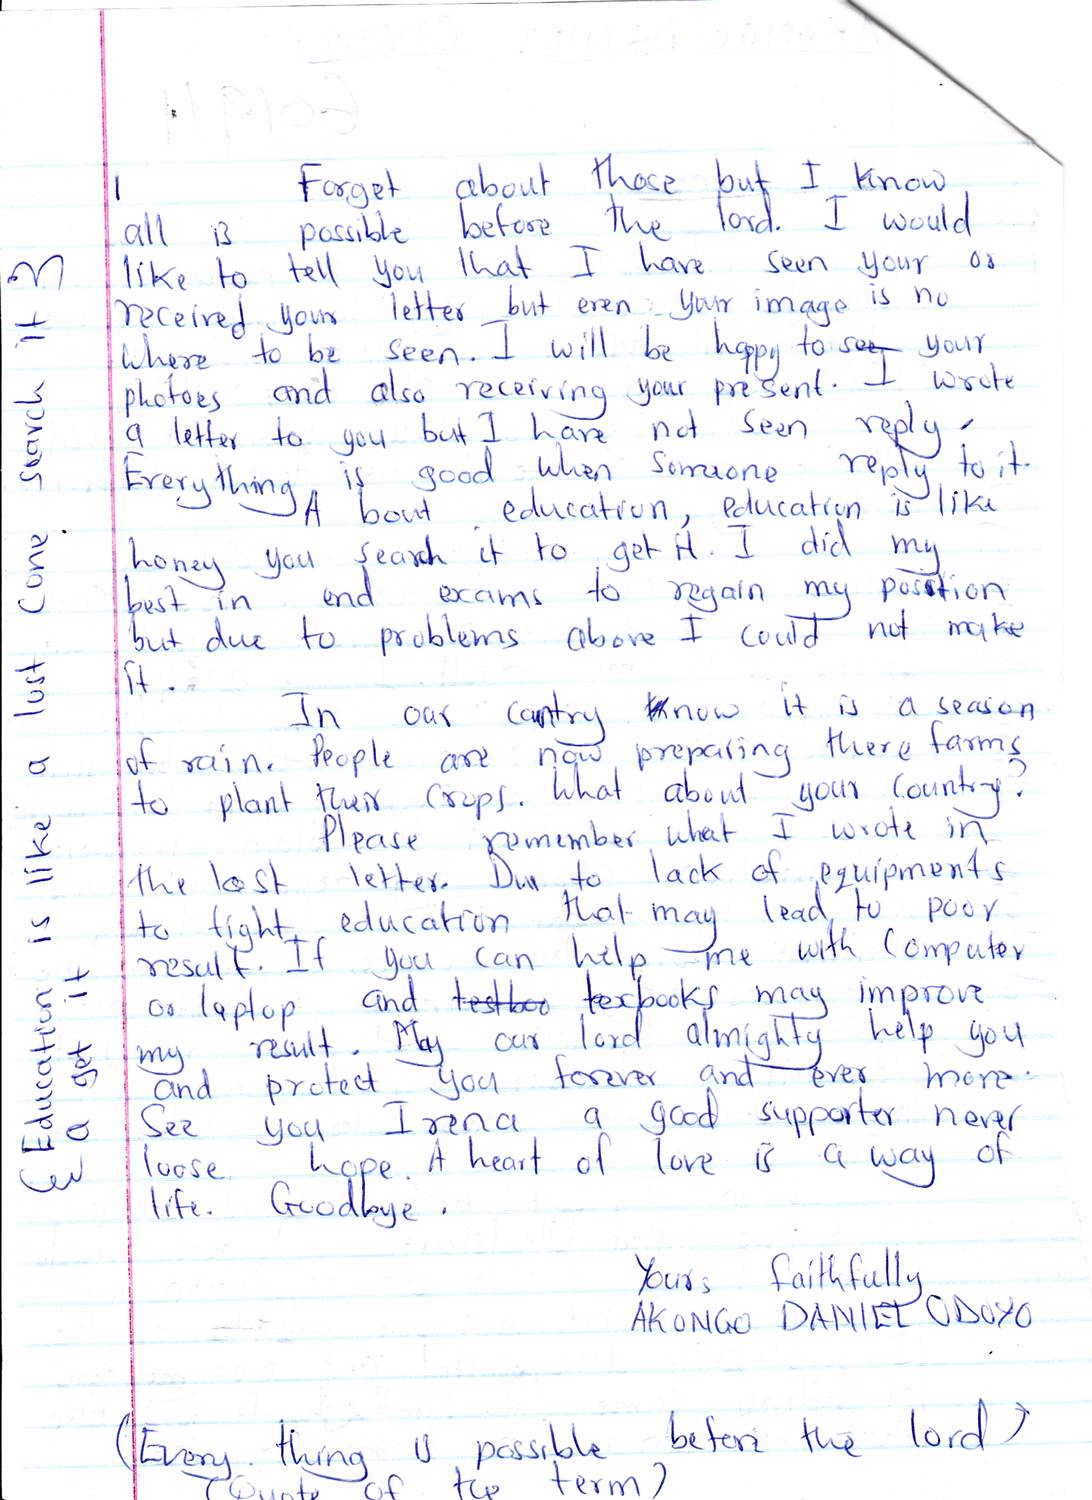 Forget about those but I know
all is possible before the lord. I would
like to tell you that I have seen your or
received your letter but even your image is no
where to be seen. I will be happy to see your
photoes and also receiving your present. I wrote
a letter to you but I have not seen reply.
Everything is good when someone reply to it.
A bout education, education is like
honey you search it to get it. I did my
best in end exams to regain my position
but due to problems above I could not make
it.
In our cantry know it is a season
of rain. People are now preparing there farms
to plant their crops. What about your country?
Please remember what I wrote in
the last letter. Due to lack of equipments
to fight education that may lead to poor
result. If you can help me with computer
or laptop and testboo texbooks may improve
my result. May our lord almighty help you
and protect you forever and ever more.
See you Irena a good supporter never
loose hope. A heart of love is a way of
life. Goodbye.
Yours faithfully
AKONGO DANIEL ODOYO
(Every thing is possible before the lord)
(Quote of the term)
Education is like a lost cone search it
a get it